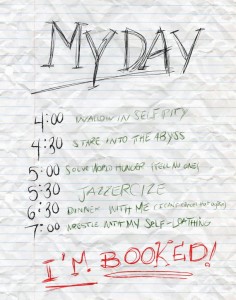 MY DAY
4:00 WALLOW IN SELF PITY
4:30 STARE INTO THE ABYSS
5:00 SOLVE WORLD HUNGER (TELL NO ONE)
5:30 JAZZERCIZE
6:30 DINNER WITH ME
7:00 WRESTLE WITH MY SELF-LOATHING
I'M BOOKED!